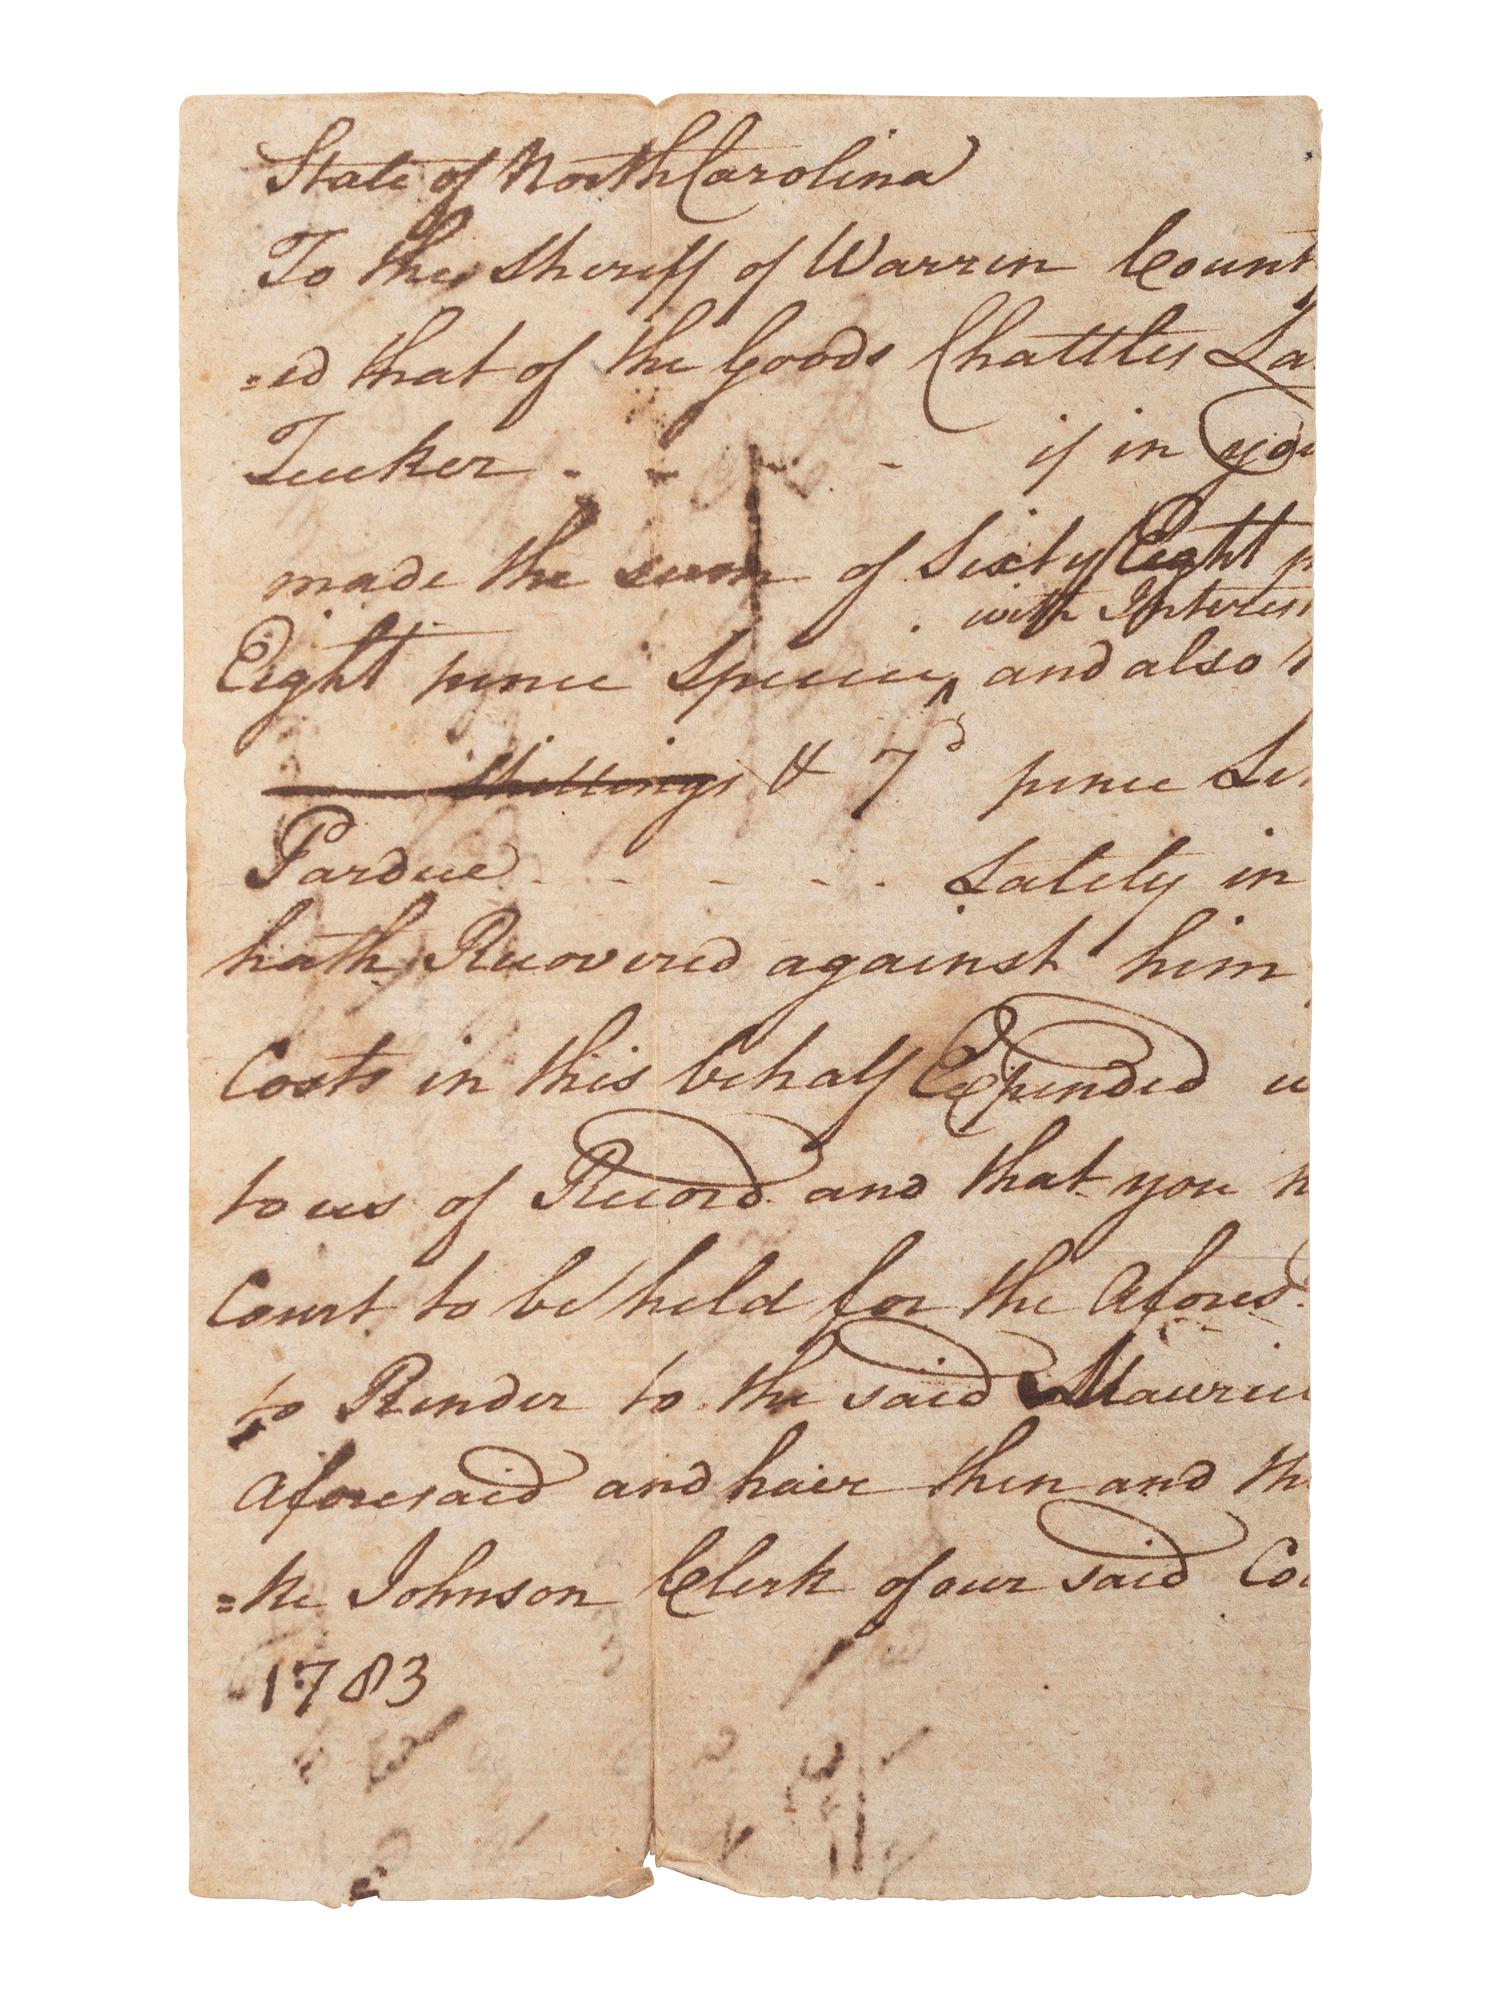 State of North Carolina
To the Sheriff of Warren Count
=ed that of the Goods Chattles La
Tucker - - - if in you
made the sum of Sixty Eight p
with Interes
Eight pence Specie ^ and also
shillings & 7d pence
Pardue - - - - - Lately in
hath Recovered against him
Costs in this behalf Expended w
to us of Record and that you h
Court to be held for the Aforesd.
to Render to the said Mauric
Aforesaid and have then and the
=ke Johnson Clerk of our said Co
1783